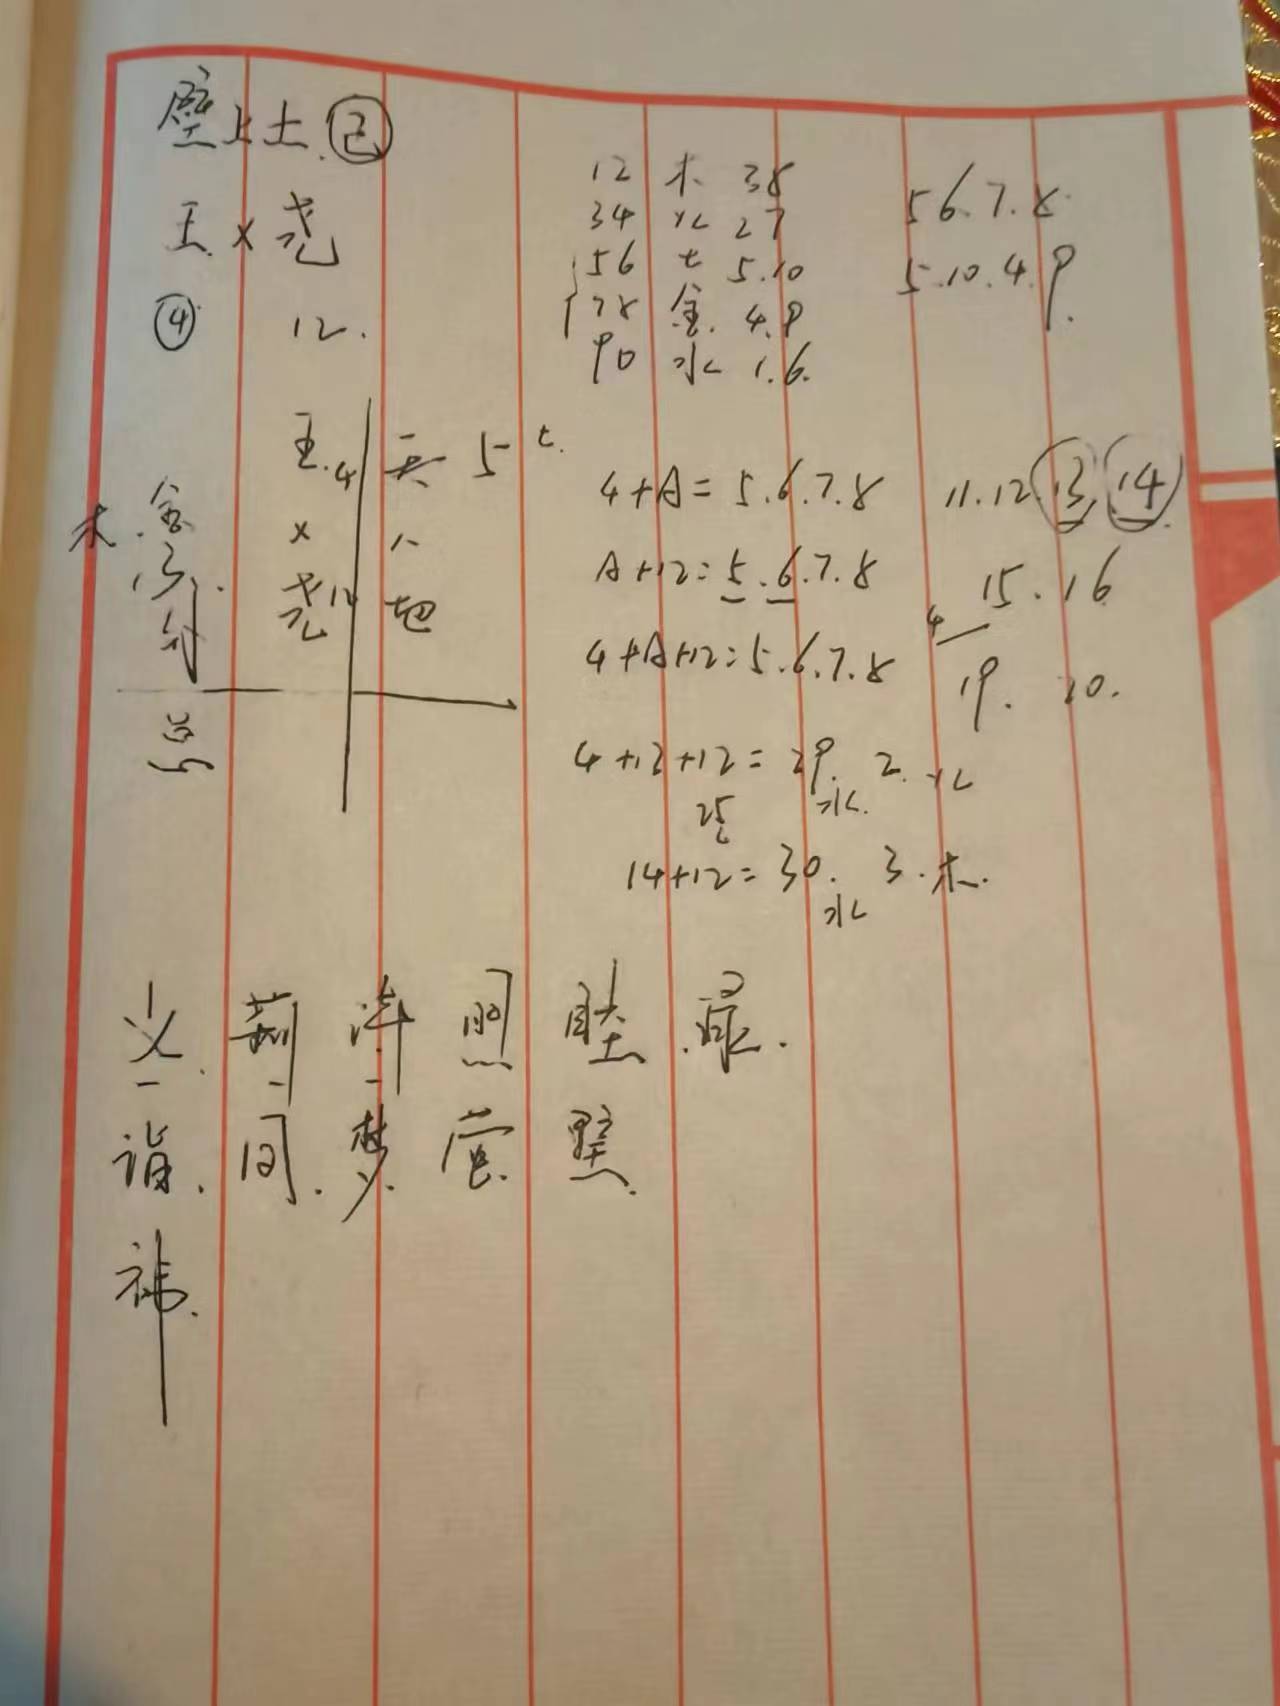 壁上土 己
王 x 尧
④ 12.
12 木 38
34 火 27
56 土 5.10
78 金. 4.9
90 水 1.6.
5 6.7.8.
5.10.4.9.
王.4 天 5 土.
木. 金 x 人
尧12 地
总
4+A=5.6.7.8 11.12.13.14.
A+12=5.6.7.8 15.16
4+A+12=5.6.7.8 4 19. 20.
4+13+12=29. 2. 火
25 水.
14+12=30. 3.木.
水
义 荆 津 照 陆 最.
诣. 同. 梦. 营. 墅.
祎.